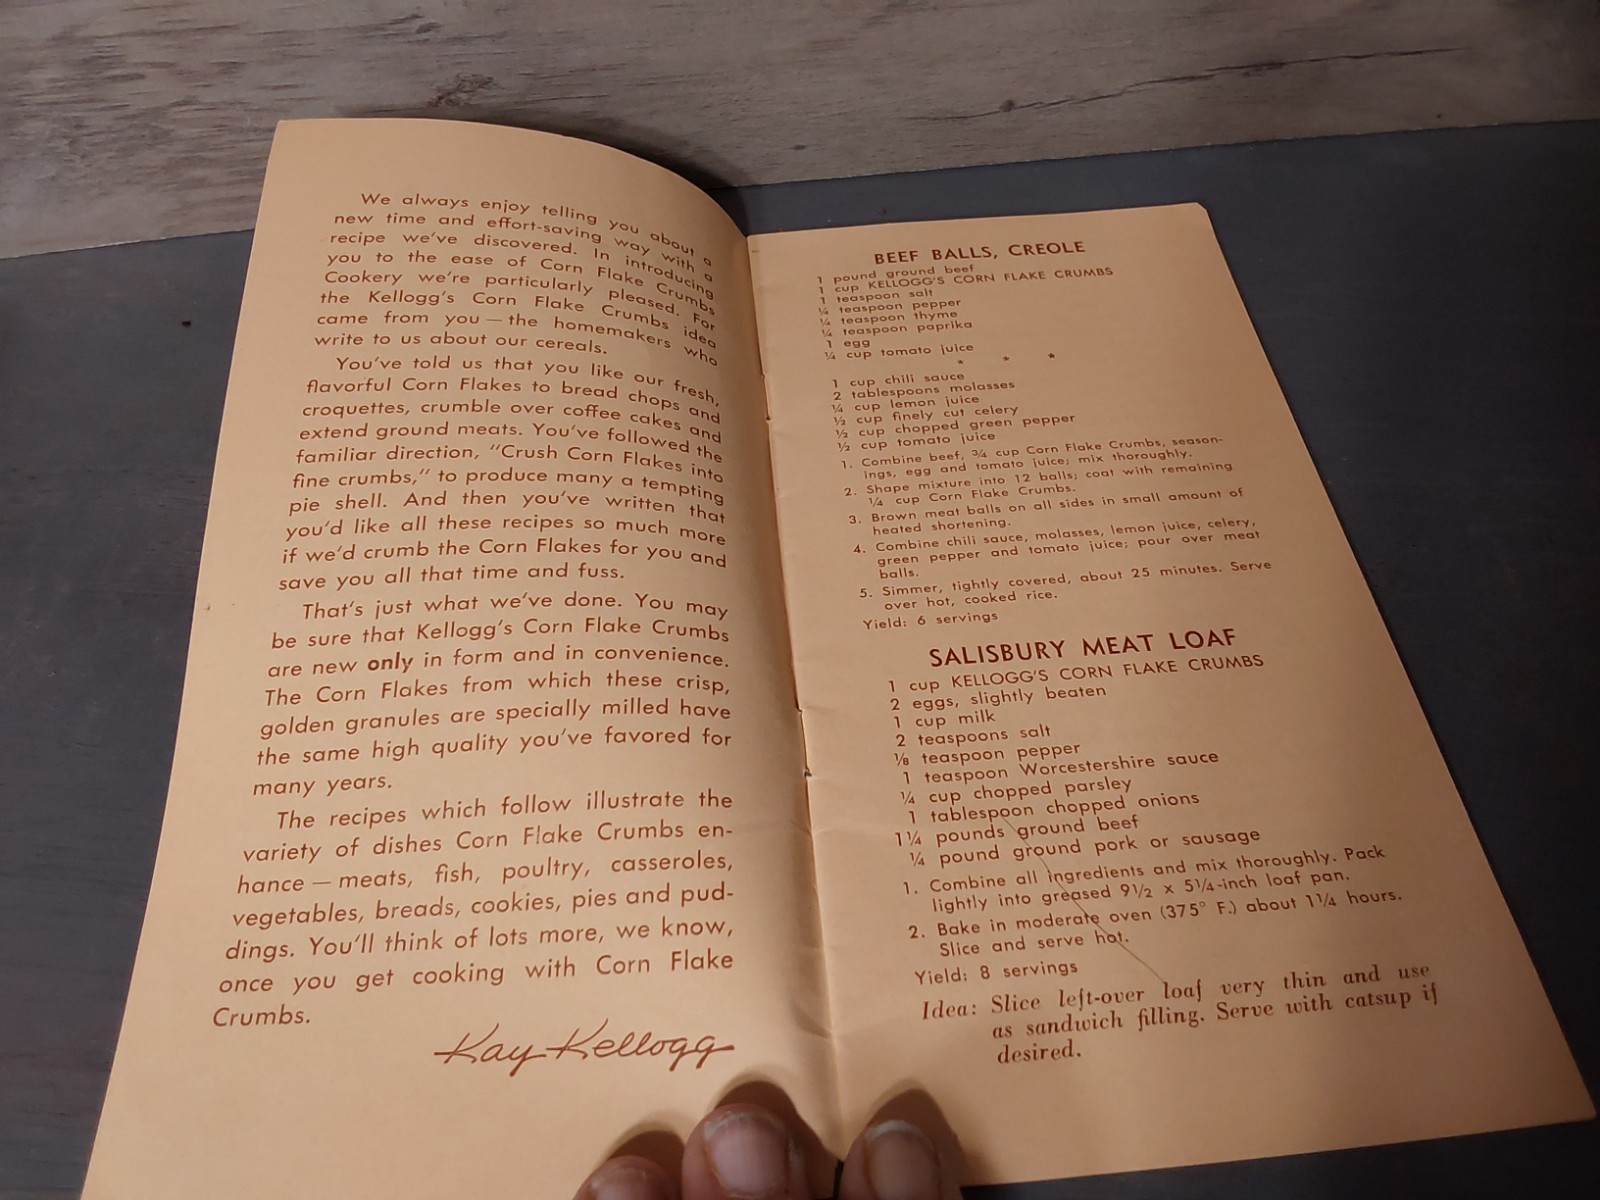 We always enjoy telling you about a
new time and effort-saving way with a
recipe we've discovered. In introducing
you to the ease of Corn Flake Crumbs
Cookery we're particularly pleased. For
the Kellogg's Corn Flake Crumbs idea
came from you — the homemakers who
write to us about our cereals.
You've told us that you like our fresh,
flavorful Corn Flakes to bread chops and
croquettes, crumble over coffee cakes and
extend ground meats. You've followed the
familiar direction, "Crush Corn Flakes into
fine crumbs," to produce many a tempting
pie shell. And then you've written that
you'd like all these recipes so much more
if we'd crumb the Corn Flakes for you and
save you all that time and fuss.
That's just what we've done. You may
be sure that Kellogg's Corn Flake Crumbs
are new only in form and in convenience.
The Corn Flakes from which these crisp,
golden granules are specially milled have
the same high quality you've favored for
many years.
The recipes which follow illustrate the
variety of dishes Corn Flake Crumbs en-
hance — meats, fish, poultry, casseroles,
vegetables, breads, cookies, pies and pud-
dings. You'll think of lots more, we know,
once you get cooking with Corn Flake
Crumbs.
Kay Kellogg
BEEF BALLS, CREOLE
1 pound ground beef
1 cup KELLOGG'S CORN FLAKE CRUMBS
1 teaspoon salt
¼ teaspoon pepper
¼ teaspoon thyme
¼ teaspoon paprika
1 egg
¼ cup tomato juice
* * *
1 cup chili sauce
2 tablespoons molasses
¼ cup lemon juice
½ cup finely cut celery
½ cup chopped green pepper
½ cup tomato juice
1. Combine beef, ¾ cup Corn Flake Crumbs, season-
ings, egg and tomato juice; mix thoroughly.
2. Shape mixture into 12 balls; coat with remaining
¼ cup Corn Flake Crumbs.
3. Brown meat balls on all sides in small amount of
heated shortening.
4. Combine chili sauce, molasses, lemon juice, celery,
green pepper and tomato juice; pour over meat
balls.
5. Simmer, tightly covered, about 25 minutes. Serve
over hot, cooked rice.
Yield: 6 servings
SALISBURY MEAT LOAF
1 cup KELLOGG'S CORN FLAKE CRUMBS
2 eggs, slightly beaten
1 cup milk
2 teaspoons salt
⅛ teaspoon pepper
1 teaspoon Worcestershire sauce
¼ cup chopped parsley
1 tablespoon chopped onions
1¼ pounds ground beef
¼ pound ground pork or sausage
1. Combine all ingredients and mix thoroughly. Pack
lightly into greased 9½ x 5¼-inch loaf pan.
2. Bake in moderate oven (375° F.) about 1¼ hours.
Slice and serve hot.
Yield: 8 servings
Idea: Slice left-over loaf very thin and use
as sandwich filling. Serve with catsup if
desired.